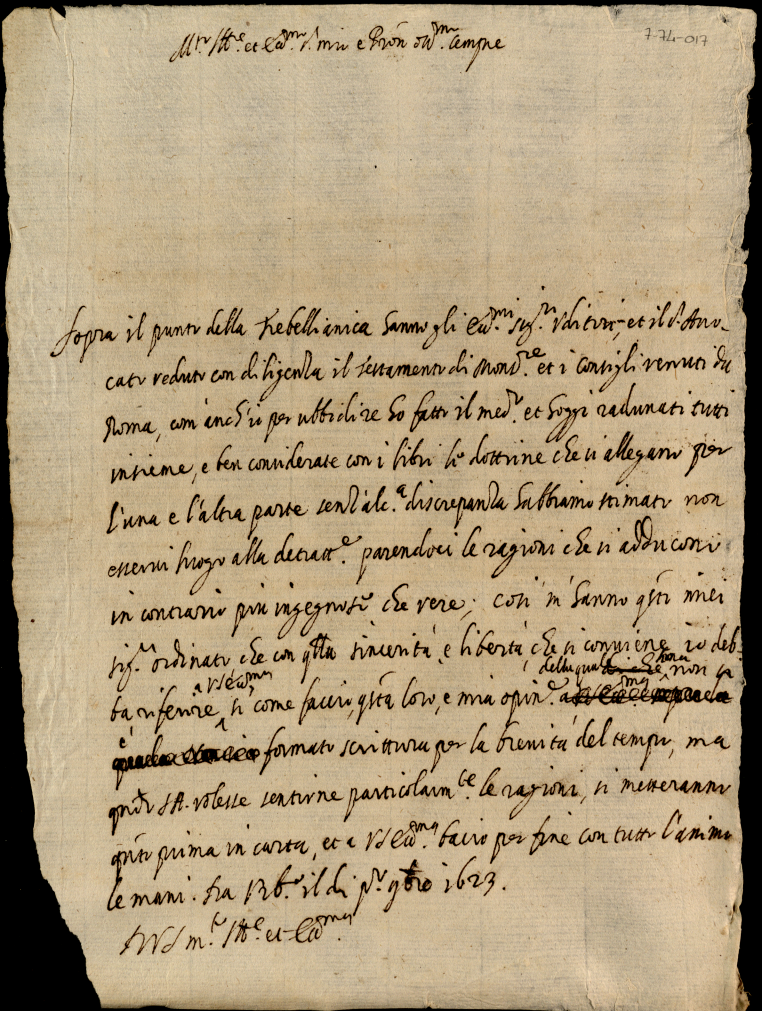 7-74-017
M.to Ill.e et Ecc.mo S.r mio e Pron oss.mo sempre
Sopra il punto della Trebellianica hanno gli Ecc.mi sig.ri Uditori, et il S.r Avvo-
cato veduto con diligenza il testamento di Mons.re et i consigli venuti da
Roma, com'anch'io per ubbidire ho fatto il med.o et hoggi radunati tutti
insieme, e ben considerate con i libri le dottrine che si allegano per
l'una e l'altra parte senz'alc.a discrepanza habbiamo stimato non
esservi luogo alla detratt.e parendoci le ragioni che si adducono
in contrario più ingegnose che vere; così m'hanno q.sti miei
sig.ri ordinato che con q.lla sincerità e libertà, che si conviene io deb-
della quale hora non si
ba riferire a VS Ecc.ma si come faccio, q.sta loro, e mia opin.e
è formato scrittura per la brevità del tempo, ma
q.ndo SA. volesse sentirne particolarm.te le ragioni, si metteranno
q.nto prima in carta, et a VS Ecc.ma bacio per fine con tutto l'animo
le mani. Da il di p.o 9bre 1623.
DVS m.to Ill.e et Ecc.ma